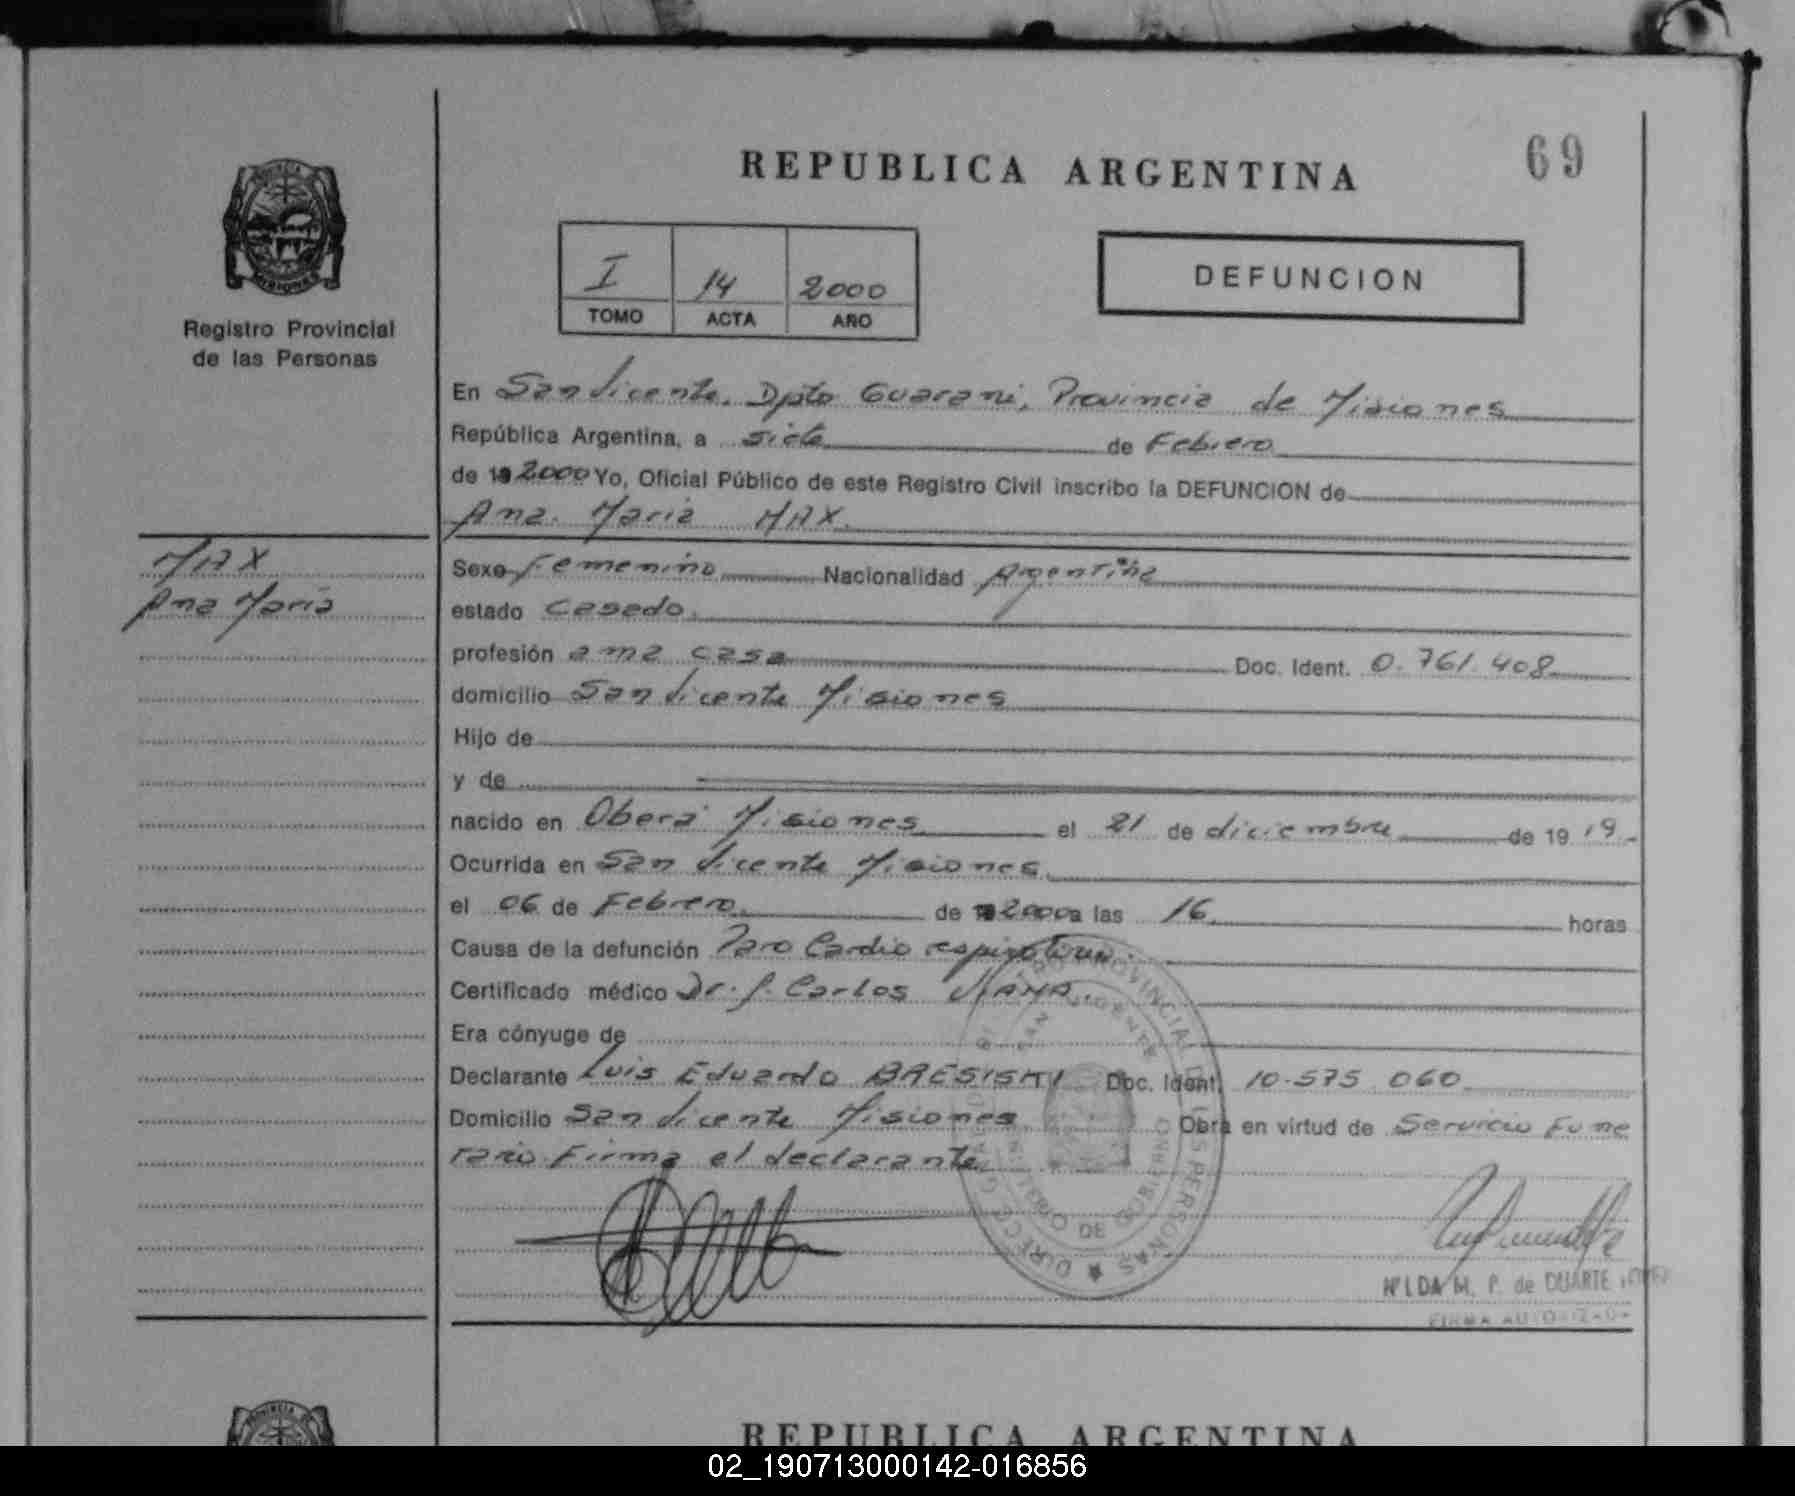 REPUBLICA ARGENTINA
69
PROVINCIA
MISIONES
Registro Provincial
de las Personas
I 14 2000
TOMO ACTA AÑO
DEFUNCION
En San Vicente, Dpto Guarani, Provincia de Misiones
República Argentina, a siete de Febrero
de 19 2000 Yo, Oficial Público de este Registro Civil inscribo la DEFUNCION de
Ana Maria MAX.
MAX
Ana Maria
Sexo Femenino Nacionalidad Argentina
estado casado.
profesión ama casa Doc. Ident. 0.761.408
domicilio San Vicente Misiones
Hijo de
y de
nacido en Oberá Misiones el 21 de diciembre de 19 19
Ocurrida en San Vicente Misiones
el 06 de Febrero de 2000 a las 16 horas
Causa de la defunción Paro Cardio respiratorio.
Certificado médico Dr. J. Carlos VIANA.
Era cónyuge de
Declarante Luis Eduardo BRESISKI Doc. Ident. 10.575.060
Domicilio San Vicente Misiones Obra en virtud de Servicio Fune
rario. Firma el declarante
NILDA M. P. de DUARTE
FIRMA AUTORIZADA
PROVINCIA DE
REPUBLICA ARGENTINA
02_190713000142-016856